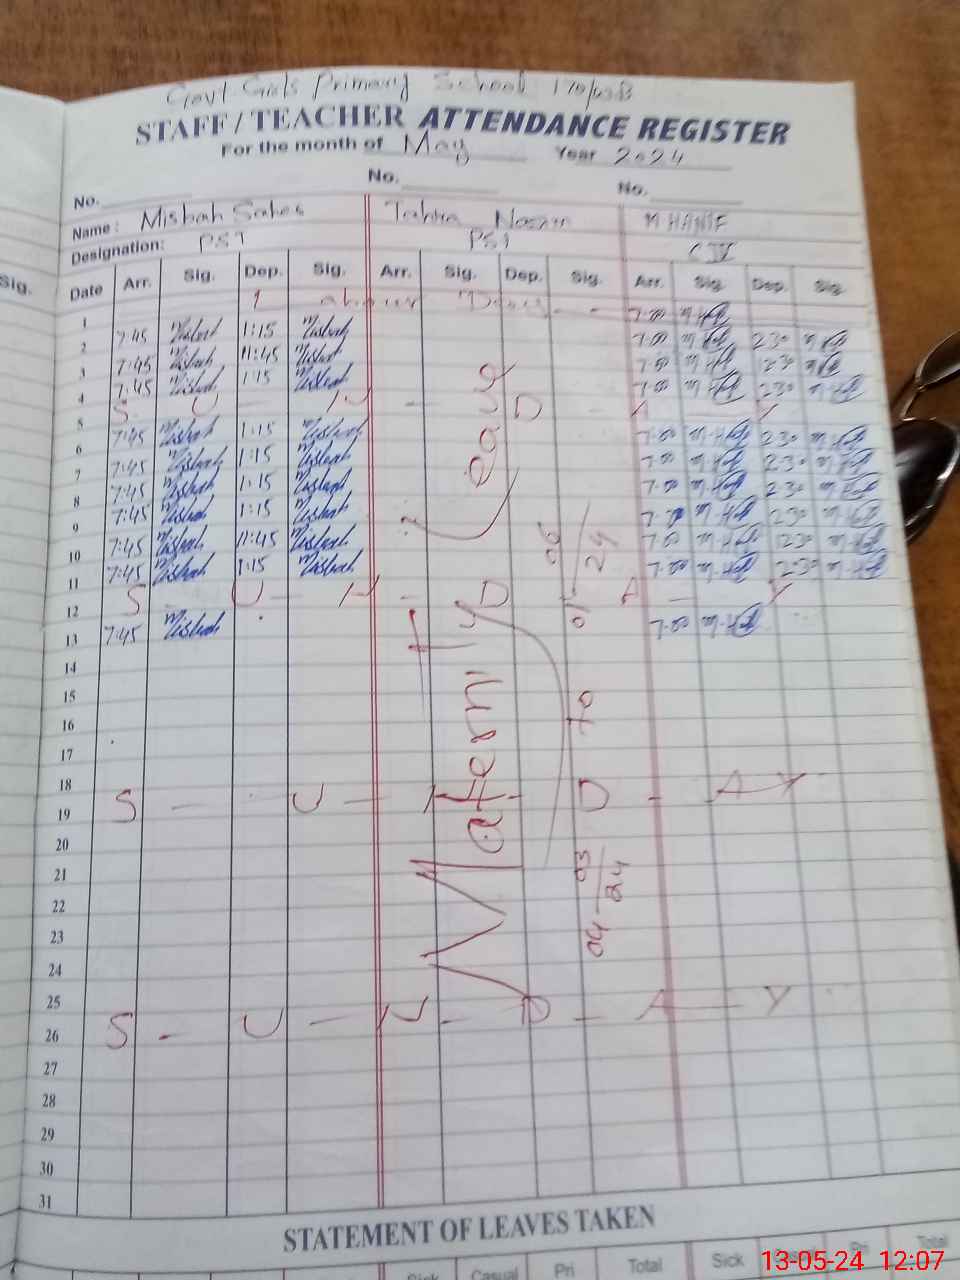 Govt Girls Primary School 170/
STAFF / TEACHER ATTENDANCE REGISTER
For the month of May Year 2024
No. No. No.
Name: Misbah Tahira M HANIF
Designation: PST PST C IV
Sig. Date Arr. Sig. Dep. Sig. Arr. Sig. Dep. Sig. Arr. Sig. Dep. Sig.
1 1 Labour Day 7:00 M.Hanif
2 7:45 Misbah 1:15 Misbah 7:00 M.Hanif 2:30 M.Hanif
3 7:45 Misbah 11:45 Misbah 7:00 M.Hanif 12:30 M.Hanif
4 7:45 Misbah 1:15 Misbah 7:00 M.Hanif 2:30 M.Hanif
5 S U N D A Y
6 7:45 Misbah 1:15 Misbah 7:00 M.Hanif 2:30 M.Hanif
7 7:45 Misbah 1:15 Misbah 7:00 M.Hanif 2:30 M.Hanif
8 7:45 Misbah 1:15 Misbah 7:00 M.Hanif 2:30 M.Hanif
9 7:45 Misbah 1:15 Misbah 7:00 M.Hanif 2:30 M.Hanif
10 7:45 Misbah 11:45 Misbah 7:00 M.Hanif 12:30 M.Hanif
11 7:45 Misbah 1:15 Misbah 7:00 M.Hanif 2:30 M.Hanif
12 S U N D A Y
13 7:45 Misbah 7:00 M.Hanif
14
15
16
17
18
19 S U N D A Y
20
21
22
23
24
25
26 S U N D A Y
27
28
29
30
31
Maternity Leave
04-03/24 To 01-06/24
STATEMENT OF LEAVES TAKEN
Sick Casual Pri Total Sick Casual Pri Total
13-05-24 12:07